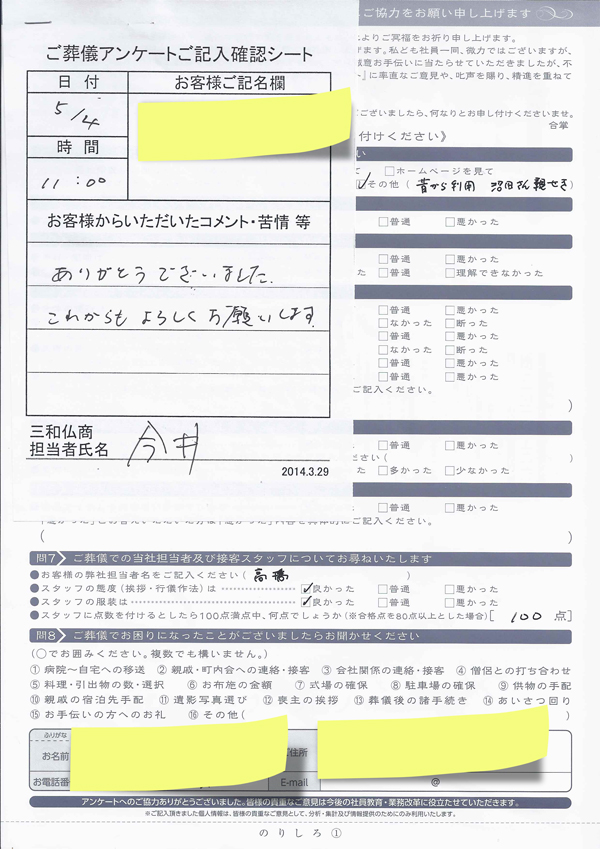 ご協力をお願い申し上げます
よりご冥福をお祈り申し上げます。
げます。私ども社員一同、微力ではございますが、
誠意お手伝いに当たらせていただきましたが、不
ト」に率直なご意見や、叱声を賜り、精進を重ねて
ございましたら、何なりとお申し付けくださいませ。
合掌
付けください》
い
て □ホームページを見て
✓その他( 昔から利用 沼田さん親せき)
□普通 □悪かった
□普通 □悪かった
た □普通 □理解できなかった
□普通 □悪かった
□なかった □断った
□普通 □悪かった
□普通 □悪かった
□なかった □断った
□普通 □悪かった
ご記入ください。
)
□普通 □悪かった
ださい( )
た □多かった □少なかった
□普通 □悪かった
ご記入ください。
( )
ご葬儀アンケートご記入確認シート
日付 お客様ご記名欄
5/4
時間
11:00
お客様からいただいたコメント・苦情 等
ありがとうございました.
これからも よろしくお願いします
三和仏商
担当者氏名 今井
2014.3.29
問7 ご葬儀での当社担当者及び接客スタッフについてお尋ねいたします
●お客様の弊社担当者名をご記入ください( 高橋 )
●スタッフの態度(挨拶・行儀作法)は ☑良かった □普通 □悪かった
●スタッフの服装は ☑良かった □普通 □悪かった
●スタッフに点数を付けるとしたら100点満点中、何点でしょうか(※合格点を80点以上とした場合)[ 100 点]
問8 ご葬儀でお困りになったことがございましたらお聞かせください
(○でお囲みください。複数でも構いません。)
①病院〜自宅への移送 ②親戚・町内会への連絡・接客 ③会社関係の連絡・接客 ④僧侶との打ち合わせ
⑤料理・引出物の数・選択 ⑥お布施の金額 ⑦式場の確保 ⑧駐車場の確保 ⑨供物の手配
⑩親戚の宿泊先手配 ⑪遺影写真選び ⑫喪主の挨拶 ⑬葬儀後の諸手続き ⑭あいさつ回り
⑮お手伝いの方へのお礼 ⑯その他( )
ふりがな
お名前 ご住所
お電話番 E-mail @
アンケートへのご協力ありがとうございました。皆様の貴重なご意見は今後の社員教育・業務改革に役立たせていただきます。
※ご記入頂きました個人情報は、皆様の貴重なご意見として、分析・集計及び情報提供のためにのみ利用いたします。
のりしろ①